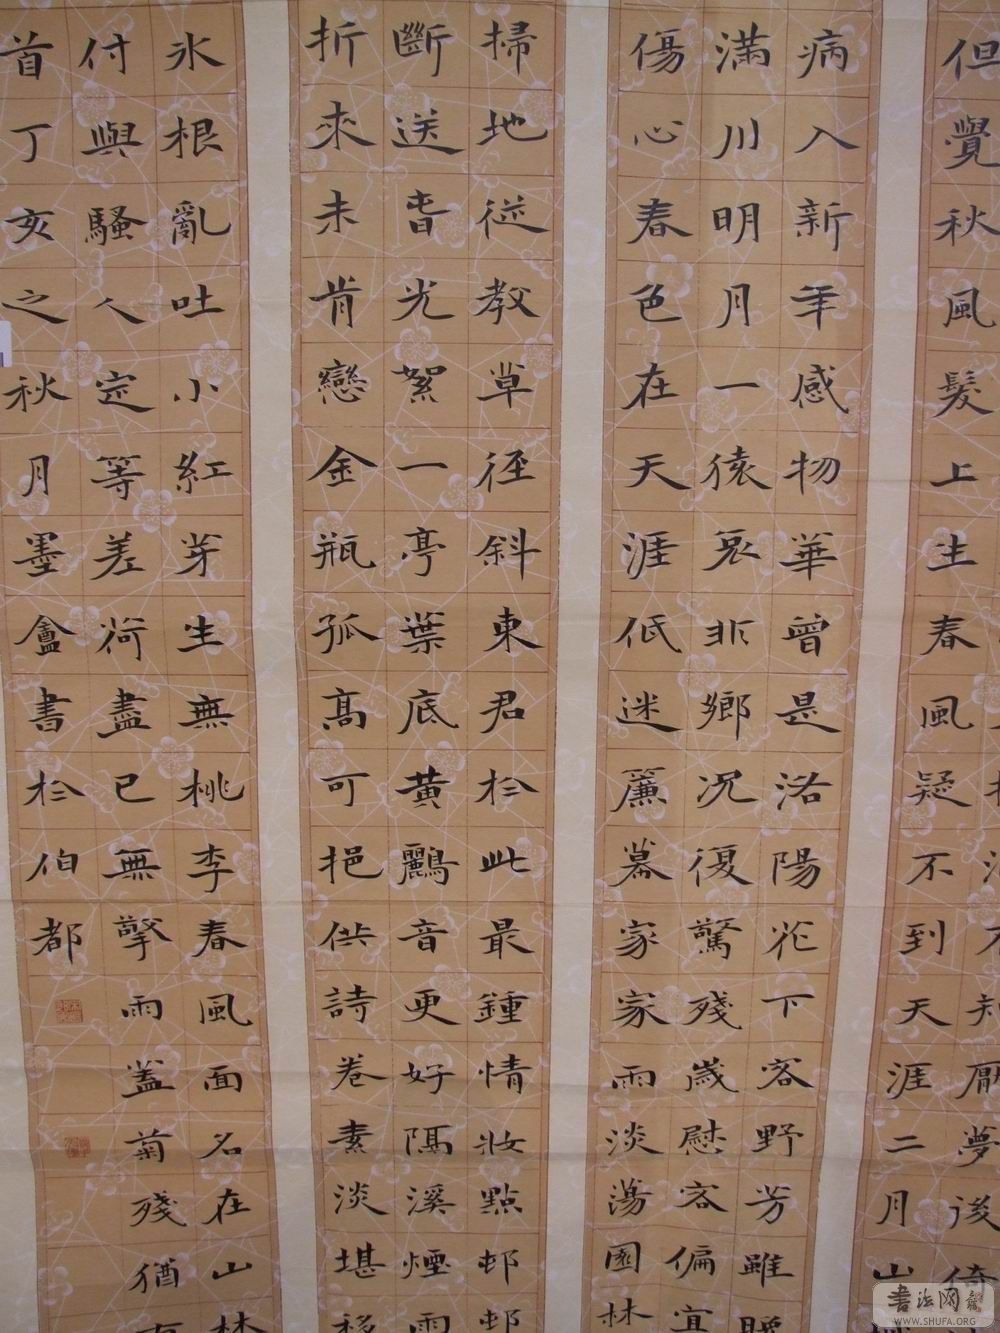 厭夢後倚
但覺秋風髮上生春風疑不到天涯二月山
病入新年感物華曾是洛陽花下客野芳雖晚
滿川明月一猿哀非鄉況復驚殘歲慰客偏宜
傷心春色在天涯低迷簾幕家家雨淡蕩園林
掃地從教草徑斜東君於此最鍾情妝點邨邨
斷送旾光絮一亭葉底黃鸝音更好隔溪煙雨
折來未肯戀金瓶孤高可挹供詩卷素淡堪移
氷根亂吐小紅芽生無桃李春風面名在山林
付與騷人定等差荷盡已無擎雨蓋菊殘猶有
首丁亥之秋月墨盦書於伯都
書法网
WWW.SHUFA.ORG